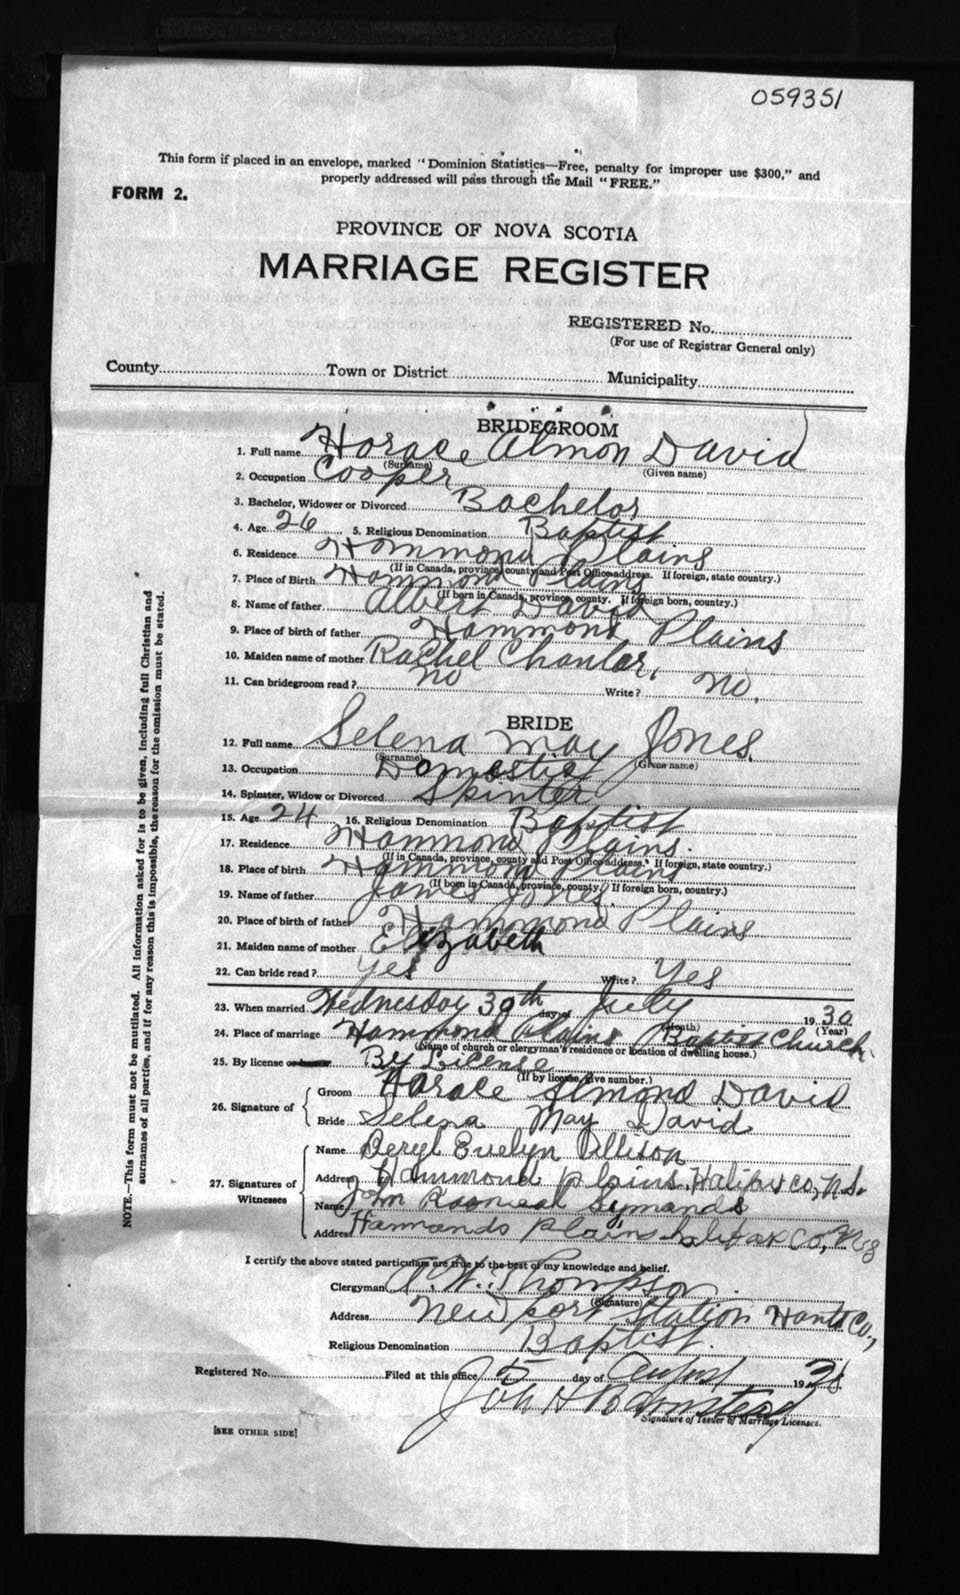 059351
This form if placed in an envelope, marked "Dominion Statistics—Free, penalty for improper use $300," and
properly addressed will pass through the Mail "FREE."
FORM 2.
PROVINCE OF NOVA SCOTIA
MARRIAGE REGISTER
REGISTERED No.
(For use of Registrar General only)
County Town or District Municipality
BRIDEGROOM
1. Full name Horace Almon David
(Surname) (Given name)
2. Occupation Cooper
3. Bachelor, Widower or Divorced Bachelor
4. Age 26 5. Religious Denomination Baptist
6. Residence Hammond Plains
(If in Canada, province, county and Post Office address. If foreign, state country.)
7. Place of Birth Hammond Plains
(If born in Canada, province, county. If foreign born, country.)
8. Name of father Albert David
9. Place of birth of father Hammond Plains
10. Maiden name of mother Rachel
11. Can bridegroom read? no Write? No.
BRIDE
12. Full name Selena May Jones.
(Surname) (Given name)
13. Occupation Domestic
14. Spinster, Widow or Divorced Spinter
15. Age 24 16. Religious Denomination Baptist
17. Residence Hammond Plains.
(If in Canada, province, county and Post Office address. If foreign, state country.)
18. Place of birth Hammond Plains
(If born in Canada, province, county. If foreign born, country.)
19. Name of father James Jones.
20. Place of birth of father Hammond Plains
21. Maiden name of mother Elizabeth
22. Can bride read? yes Write? Yes
23. When married Wednesday 30th day of July 1930
(Month) (Year)
24. Place of marriage Hammond Plains Baptist Church
(Name of church or clergyman's residence or location of dwelling house.)
25. By license or By License
(If by license, give number.)
26. Signature of
Groom Horace Almond David
Bride Selena May David
27. Signatures of Witnesses
Name Beryl Evelyn
Address Hammond Plains. Halifax Co, N.S.
Name
Address Hammonds Plains Halifax Co, N S
I certify the above stated particulars are true to the best of my knowledge and belief.
Clergyman W. Thompson
(Signature)
Address Newport Station Hants Co,
Religious Denomination Baptist.
Registered No. Filed at this office 5 day of August 19
Signature of Issuer of Marriage Licenses.
[SEE OTHER SIDE]
NOTE.—This form must not be mutilated. All information asked for is to be given, including full Christian and
surnames of all parties, and if for any reason this is impossible, the reason for the omission must be stated.